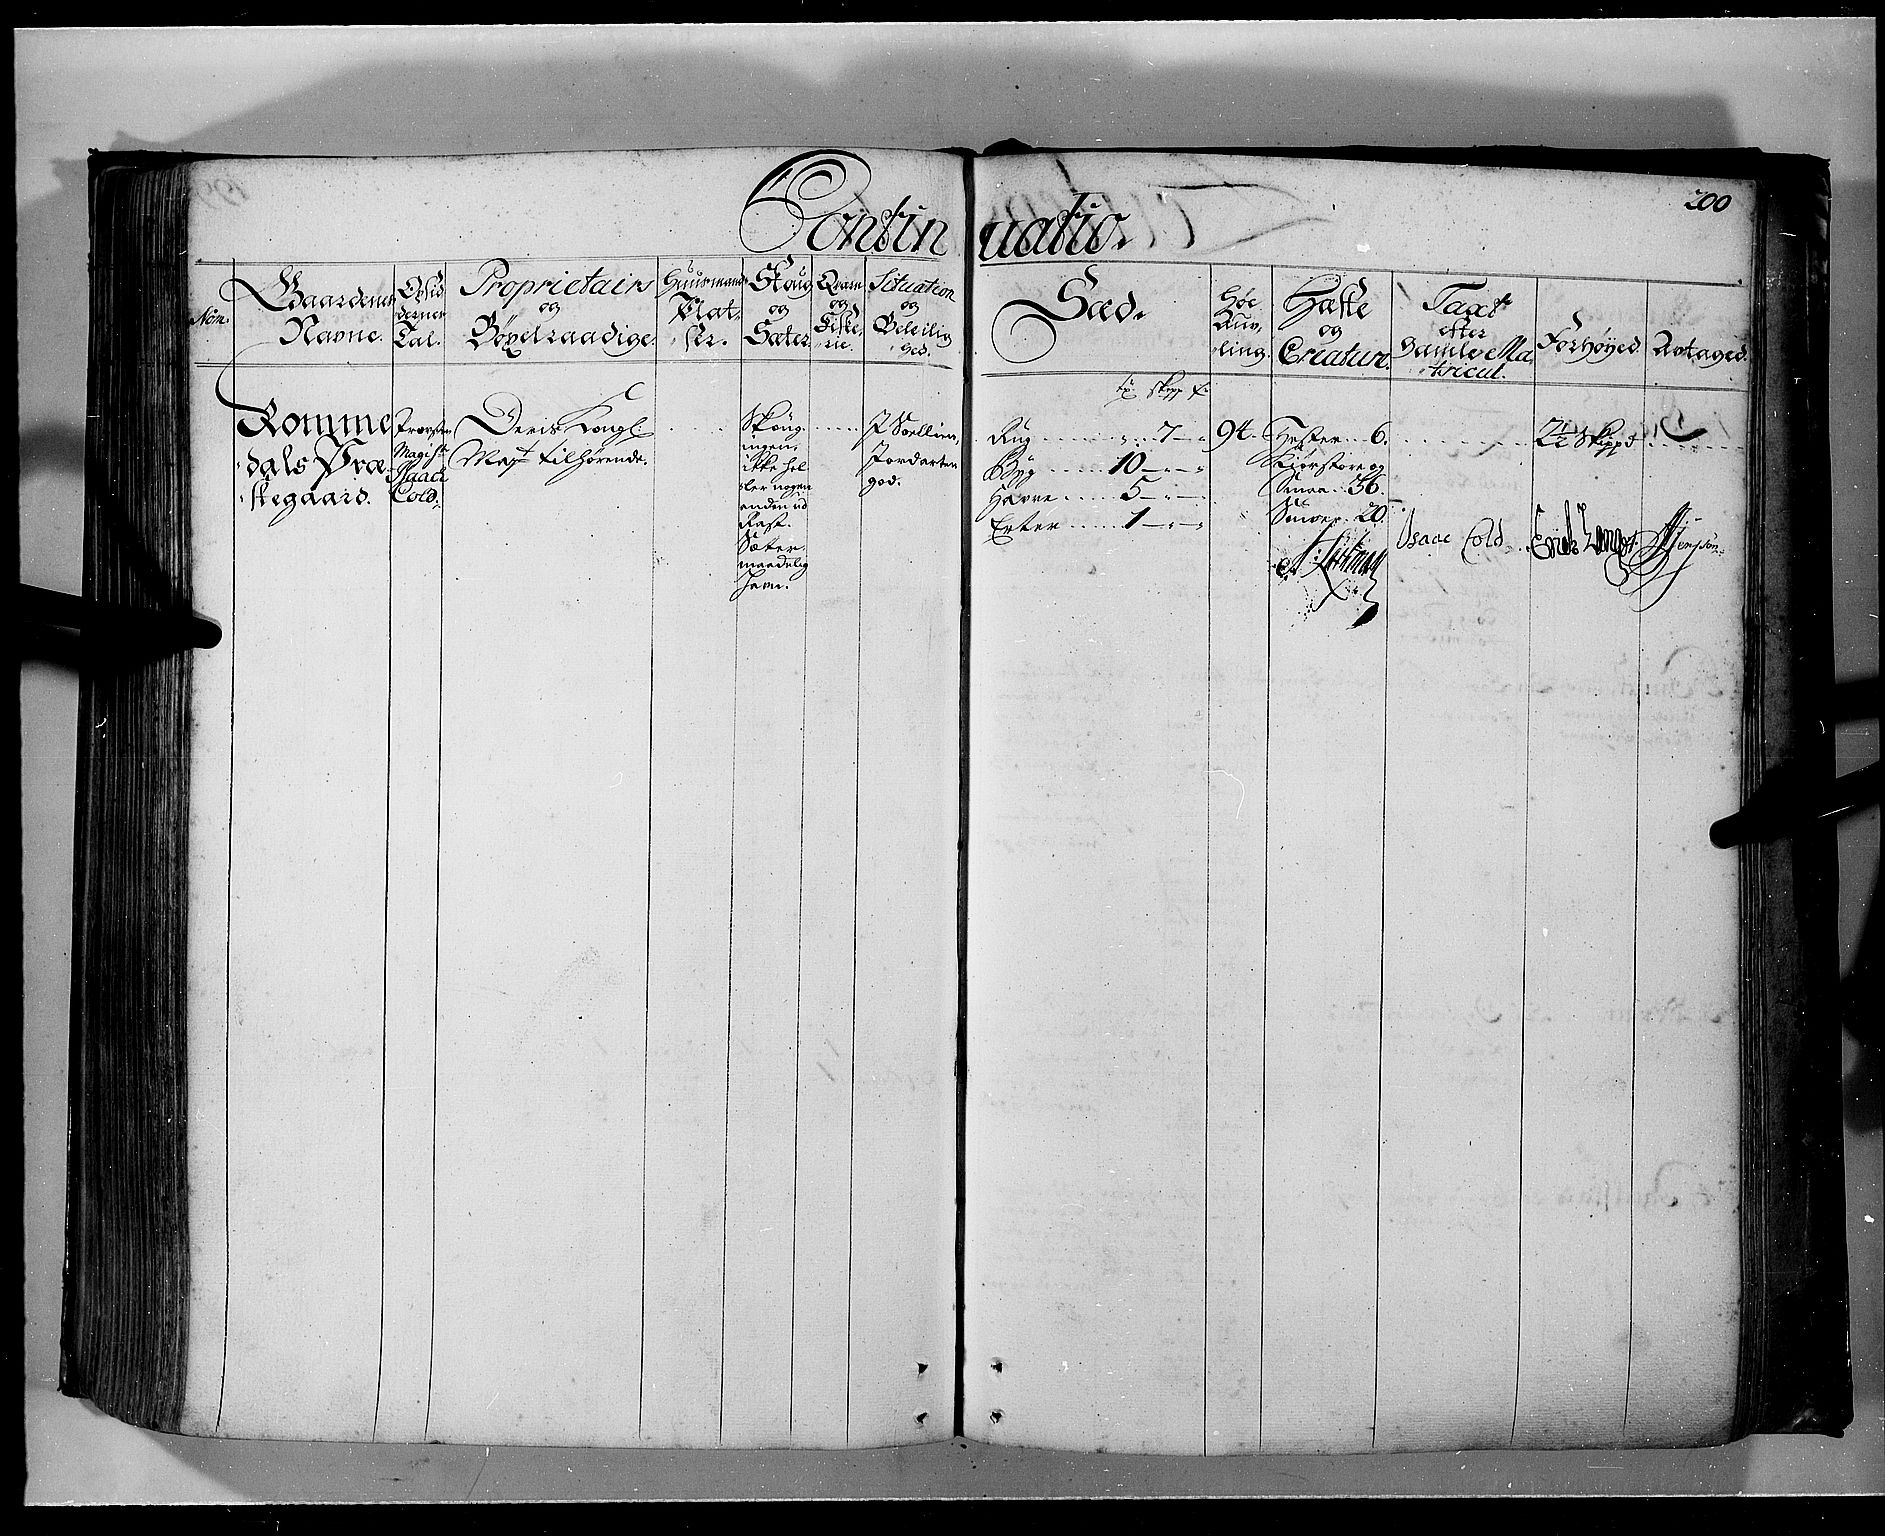 200
Continuatio.
Nõm.
Gaardenes
Navne.
Opsid
dernes
Tal.
Proprietairs
og
Böxelraadige.
Huusmands
Plat-
ser.
Skaug
og
Sæter.
Qværn
og
Fiske
rie.
Situation
og
Beleilig
hed.
Sæd.
Høe
Auv,
ling.
Hæste
og
Creature.
Taxt
efter
Gamle Ma
tricul.
Forhøyed.
Avtaged.
Romme
dals Præ
stegaard.
Provsten
Magistr
Isaach
Cold.
Deris Kongl:
Mayt tilhørende.
Skoug
ingen,
ikke hel
ler nogen
anden ud
Rast.
Sæter
maadelig
havn.
I Soellien,
Jordarten
god.
tr skpp f
Rug 7
Byg 10
Havre 5
Erter 1
94.
Hester 6.
Kiør store og
Smaa 36.
Smaer 20.
2½ Skippd
Isaac Cold